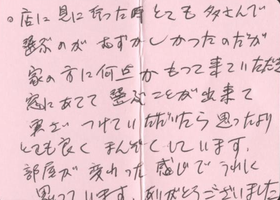 。店に見に行った時とても多さんで
選ぶのがむずかしかったのだが
家の方に何点かもって来ていただき
窓にあてて選ぶことが出来て
実さいつけていただいたら思ったより
とても良くまんぞくしています。
部屋が変わった感じでうれしく
思っています。ありがとうございました